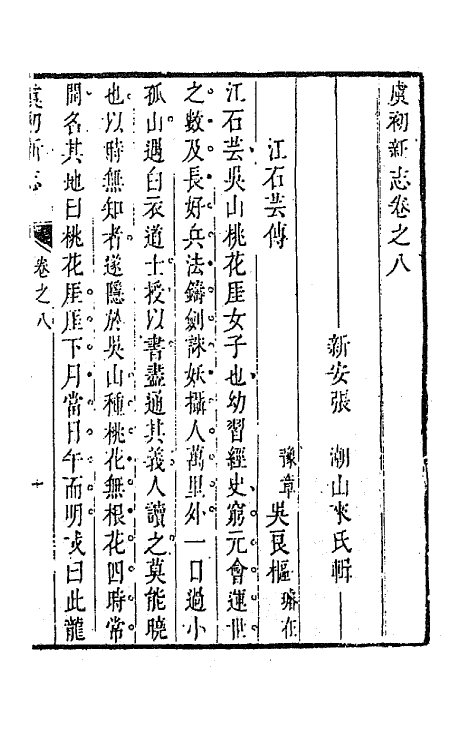 虞初新志卷之八
新安張　潮山來氏輯
江石芸傳
豫章吳良樞璿在
江石芸吳山桃花厓女子也幼習經史窮元會運世
之數及長好兵法鑄劍誅妖攝人萬里外一日過小
孤山遇白衣道士授以書盡通其義人讀之莫能曉
也以時無知者遂隱於吳山種桃花無根花四時常
開名其地曰桃花厓厓下月當日午而明或曰此龍
虞初新志
卷之八